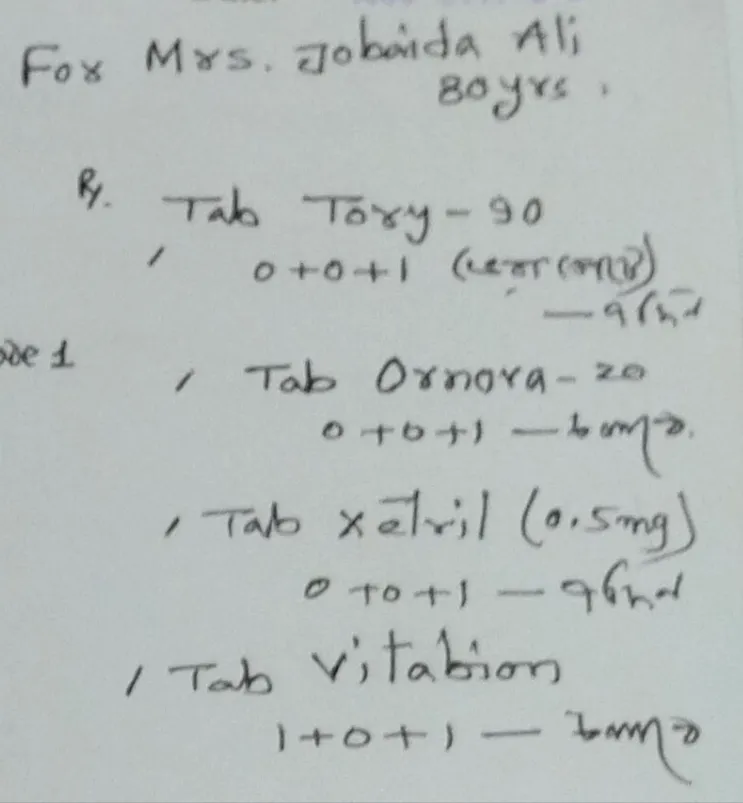 For Mrs. Jobaida Ali
80 yrs.
Rx. Tab Tory - 90
0 + 0 + 1 (খাওয়ার পর)
— ৭ দিন
1
Tab Ornova - 20
0 + 0 + 1 —
Tab Xetril (0.5mg)
0 + 0 + 1 — ৭ দিন
Tab Vitabion
1 + 0 + 1 —